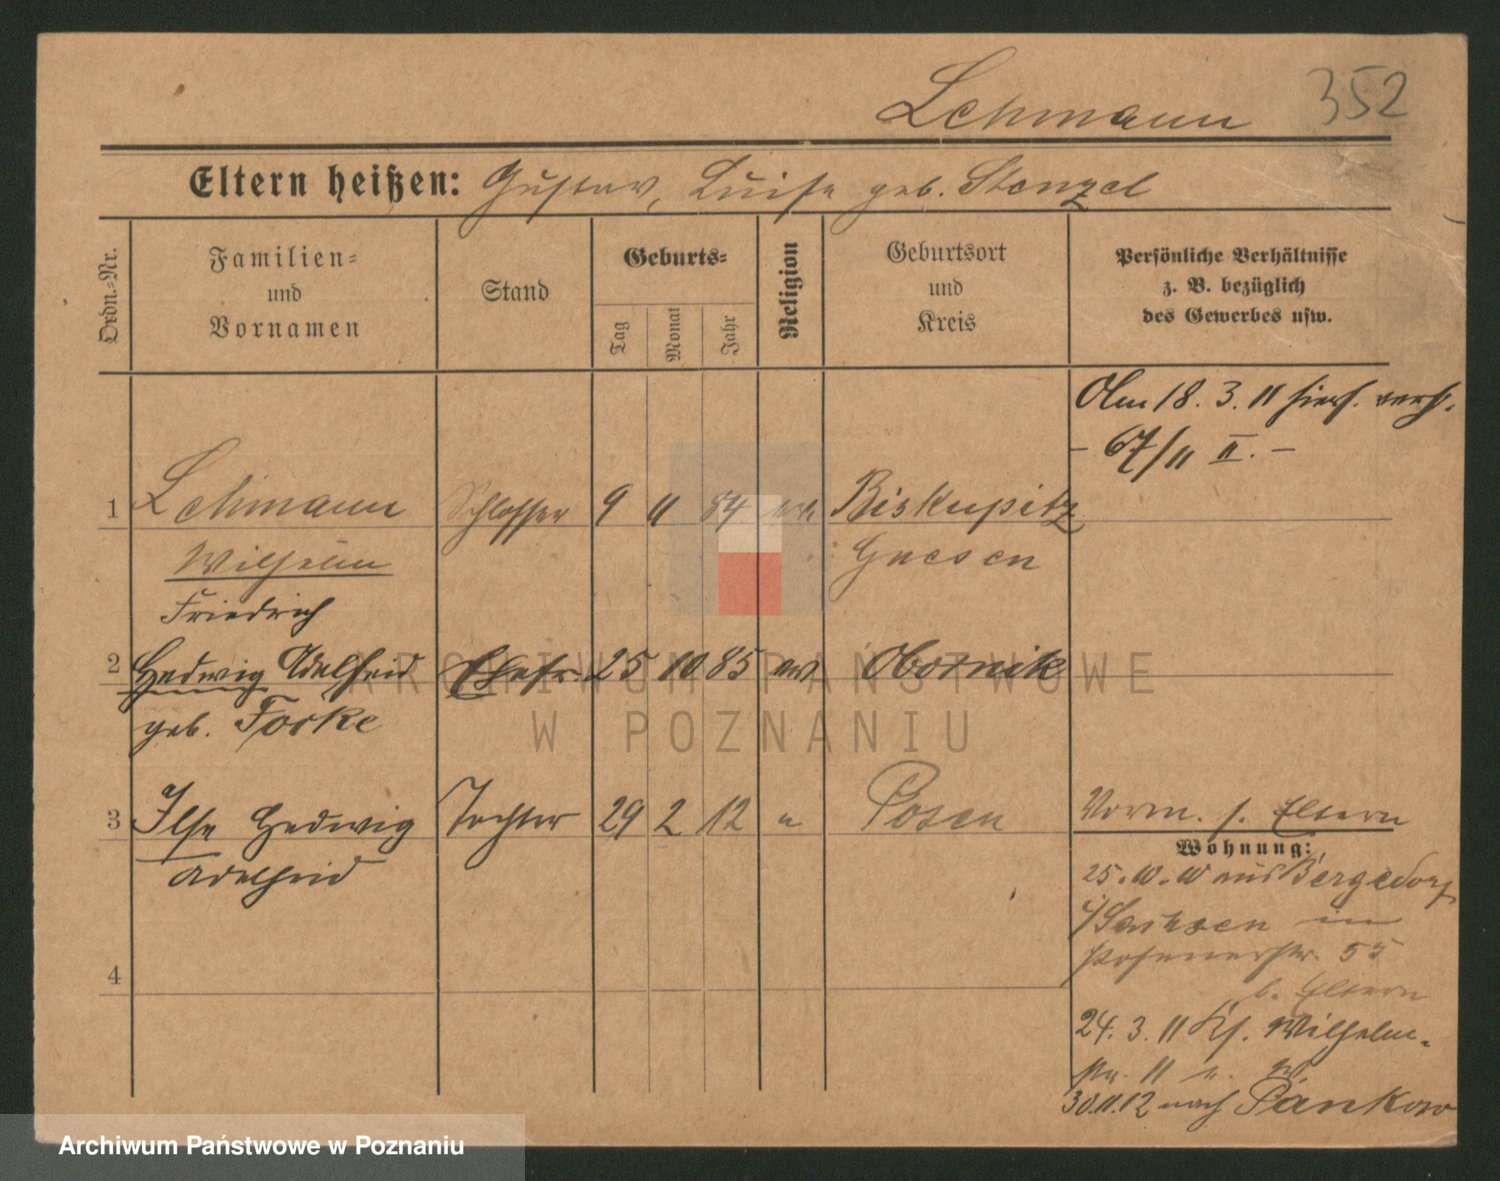 Lehmann 352
Eltern heißen: Gustav, Luise geb. Stenzel
Ordn.-Nr.
Familien-
und
Vornamen
Stand
Geburts-
Tag
Monat
Jahr
Religion
Geburtsort
und
Kreis
Persönliche Verhältnisse
z. B. bezüglich
des Gewerbes usw.
Am 18. 3. 11 hies. verh.
- 67/11 II. -
1 Lehmann Schlosser 9 11 84 ev. Biskupitz
Wilhelm Gnesen
Friedrich
2 Hedwig Adelheid Ehefr. 25 10 85 ev. Obornik
geb. Forke
3 Ilse Hedwig Tochter 29 2 12 " Posen
Adelheid
Vorm. s. Eltern
Wohnung:
25. 10. 10 aus Bergedorf
i/Sachsen in
Posenerstr. 55
b. Eltern
24. 3. 11 Ks. Wilhelm-
11
30.11.12 nach Pankow
4
ARCHIWUM PAŃSTWOWE
W POZNANIU
Archiwum Państwowe w Poznaniu